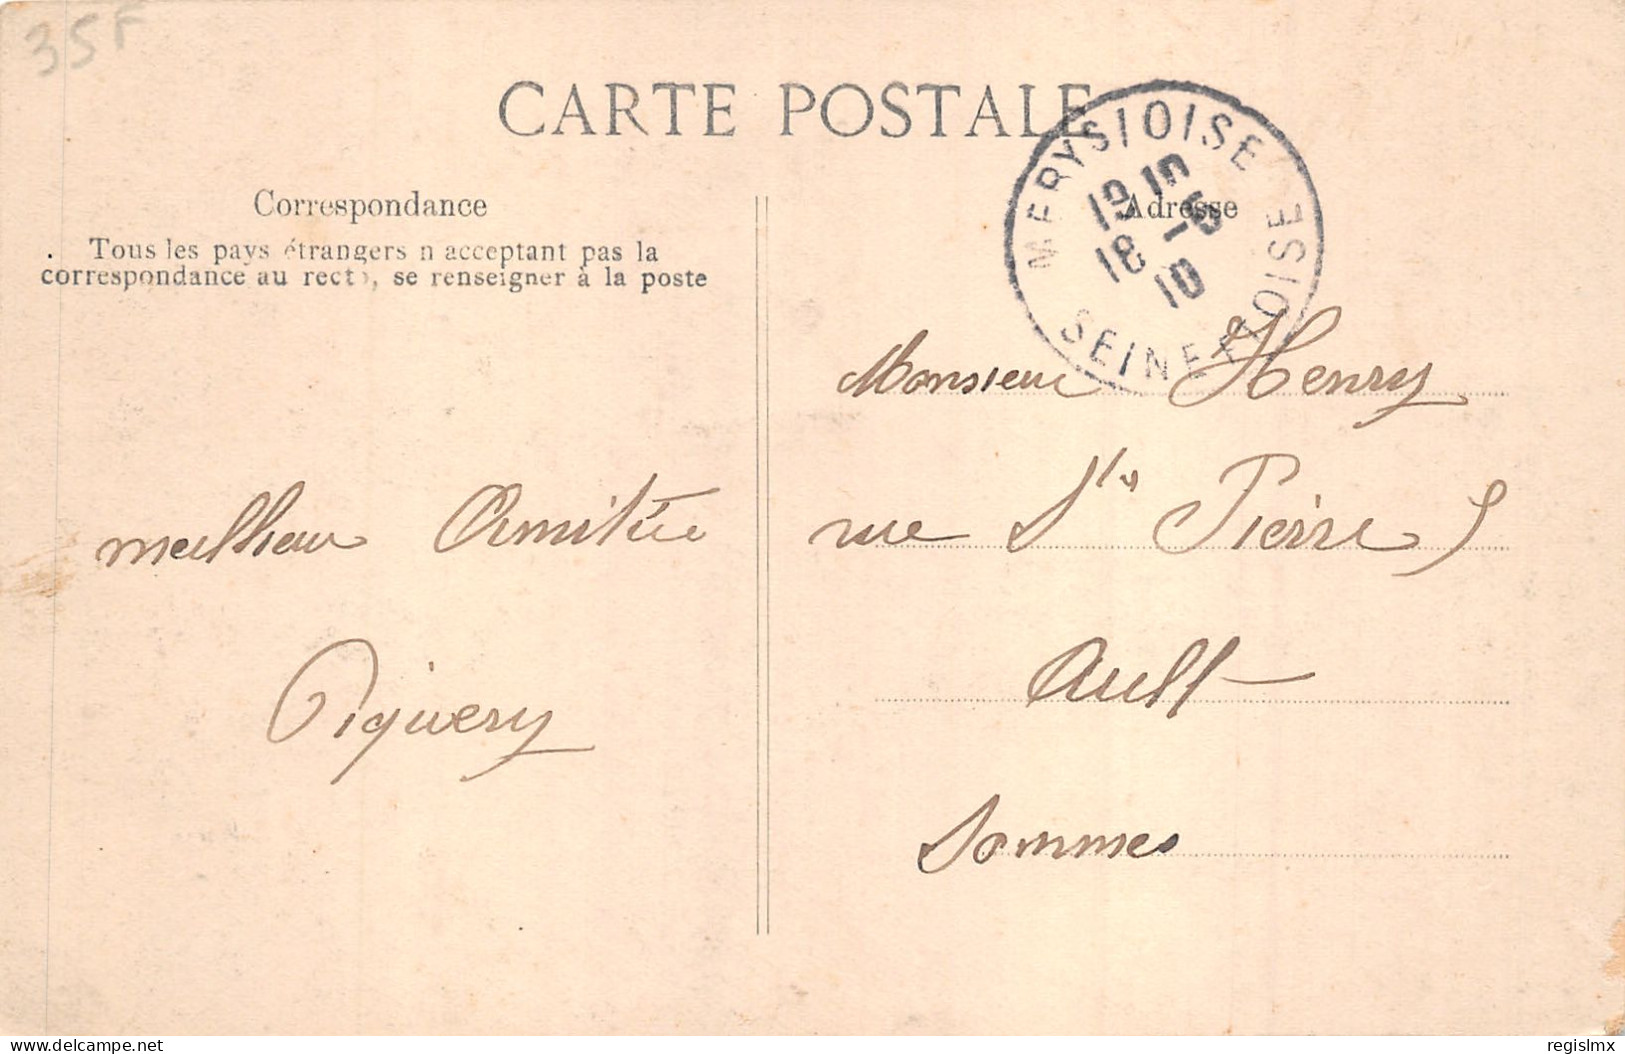 35F
CARTE POSTALE
MERY S/ OISE
SEINE ET OISE
19 10
18 -5
10
Correspondance
Tous les pays étrangers n acceptant pas la
correspondance au recto, se renseigner à la poste
Adresse
meilheur Amitiée
Piquery
Monsieur Henry
rue St Pierre
Ault
Sommes
delcampe.net
regislmx